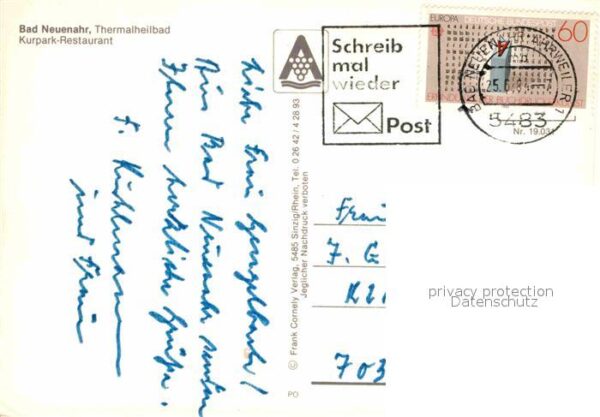 Bad Neuenahr, Thermalheilbad
Kurpark-Restaurant
Schreib
mal
wieder
Post
EUROPA DEUTSCHE BUNDESPOST 60
BAD NEUENAHR-AHRWEILER 1
5483
Nr. 19.031
Liebe Frau
Aus Bad Neuenahr senden
Ihnen herzliche Grüße.
F. Kuhlmann
und Frau
© Frank Cornely Verlag, 5485 Sinzig/Rhein, Tel. 0 26 42 / 4 28 93
Jeglicher Nachdruck verboten
PO
7. G
703
privacy protection
Datenschutz